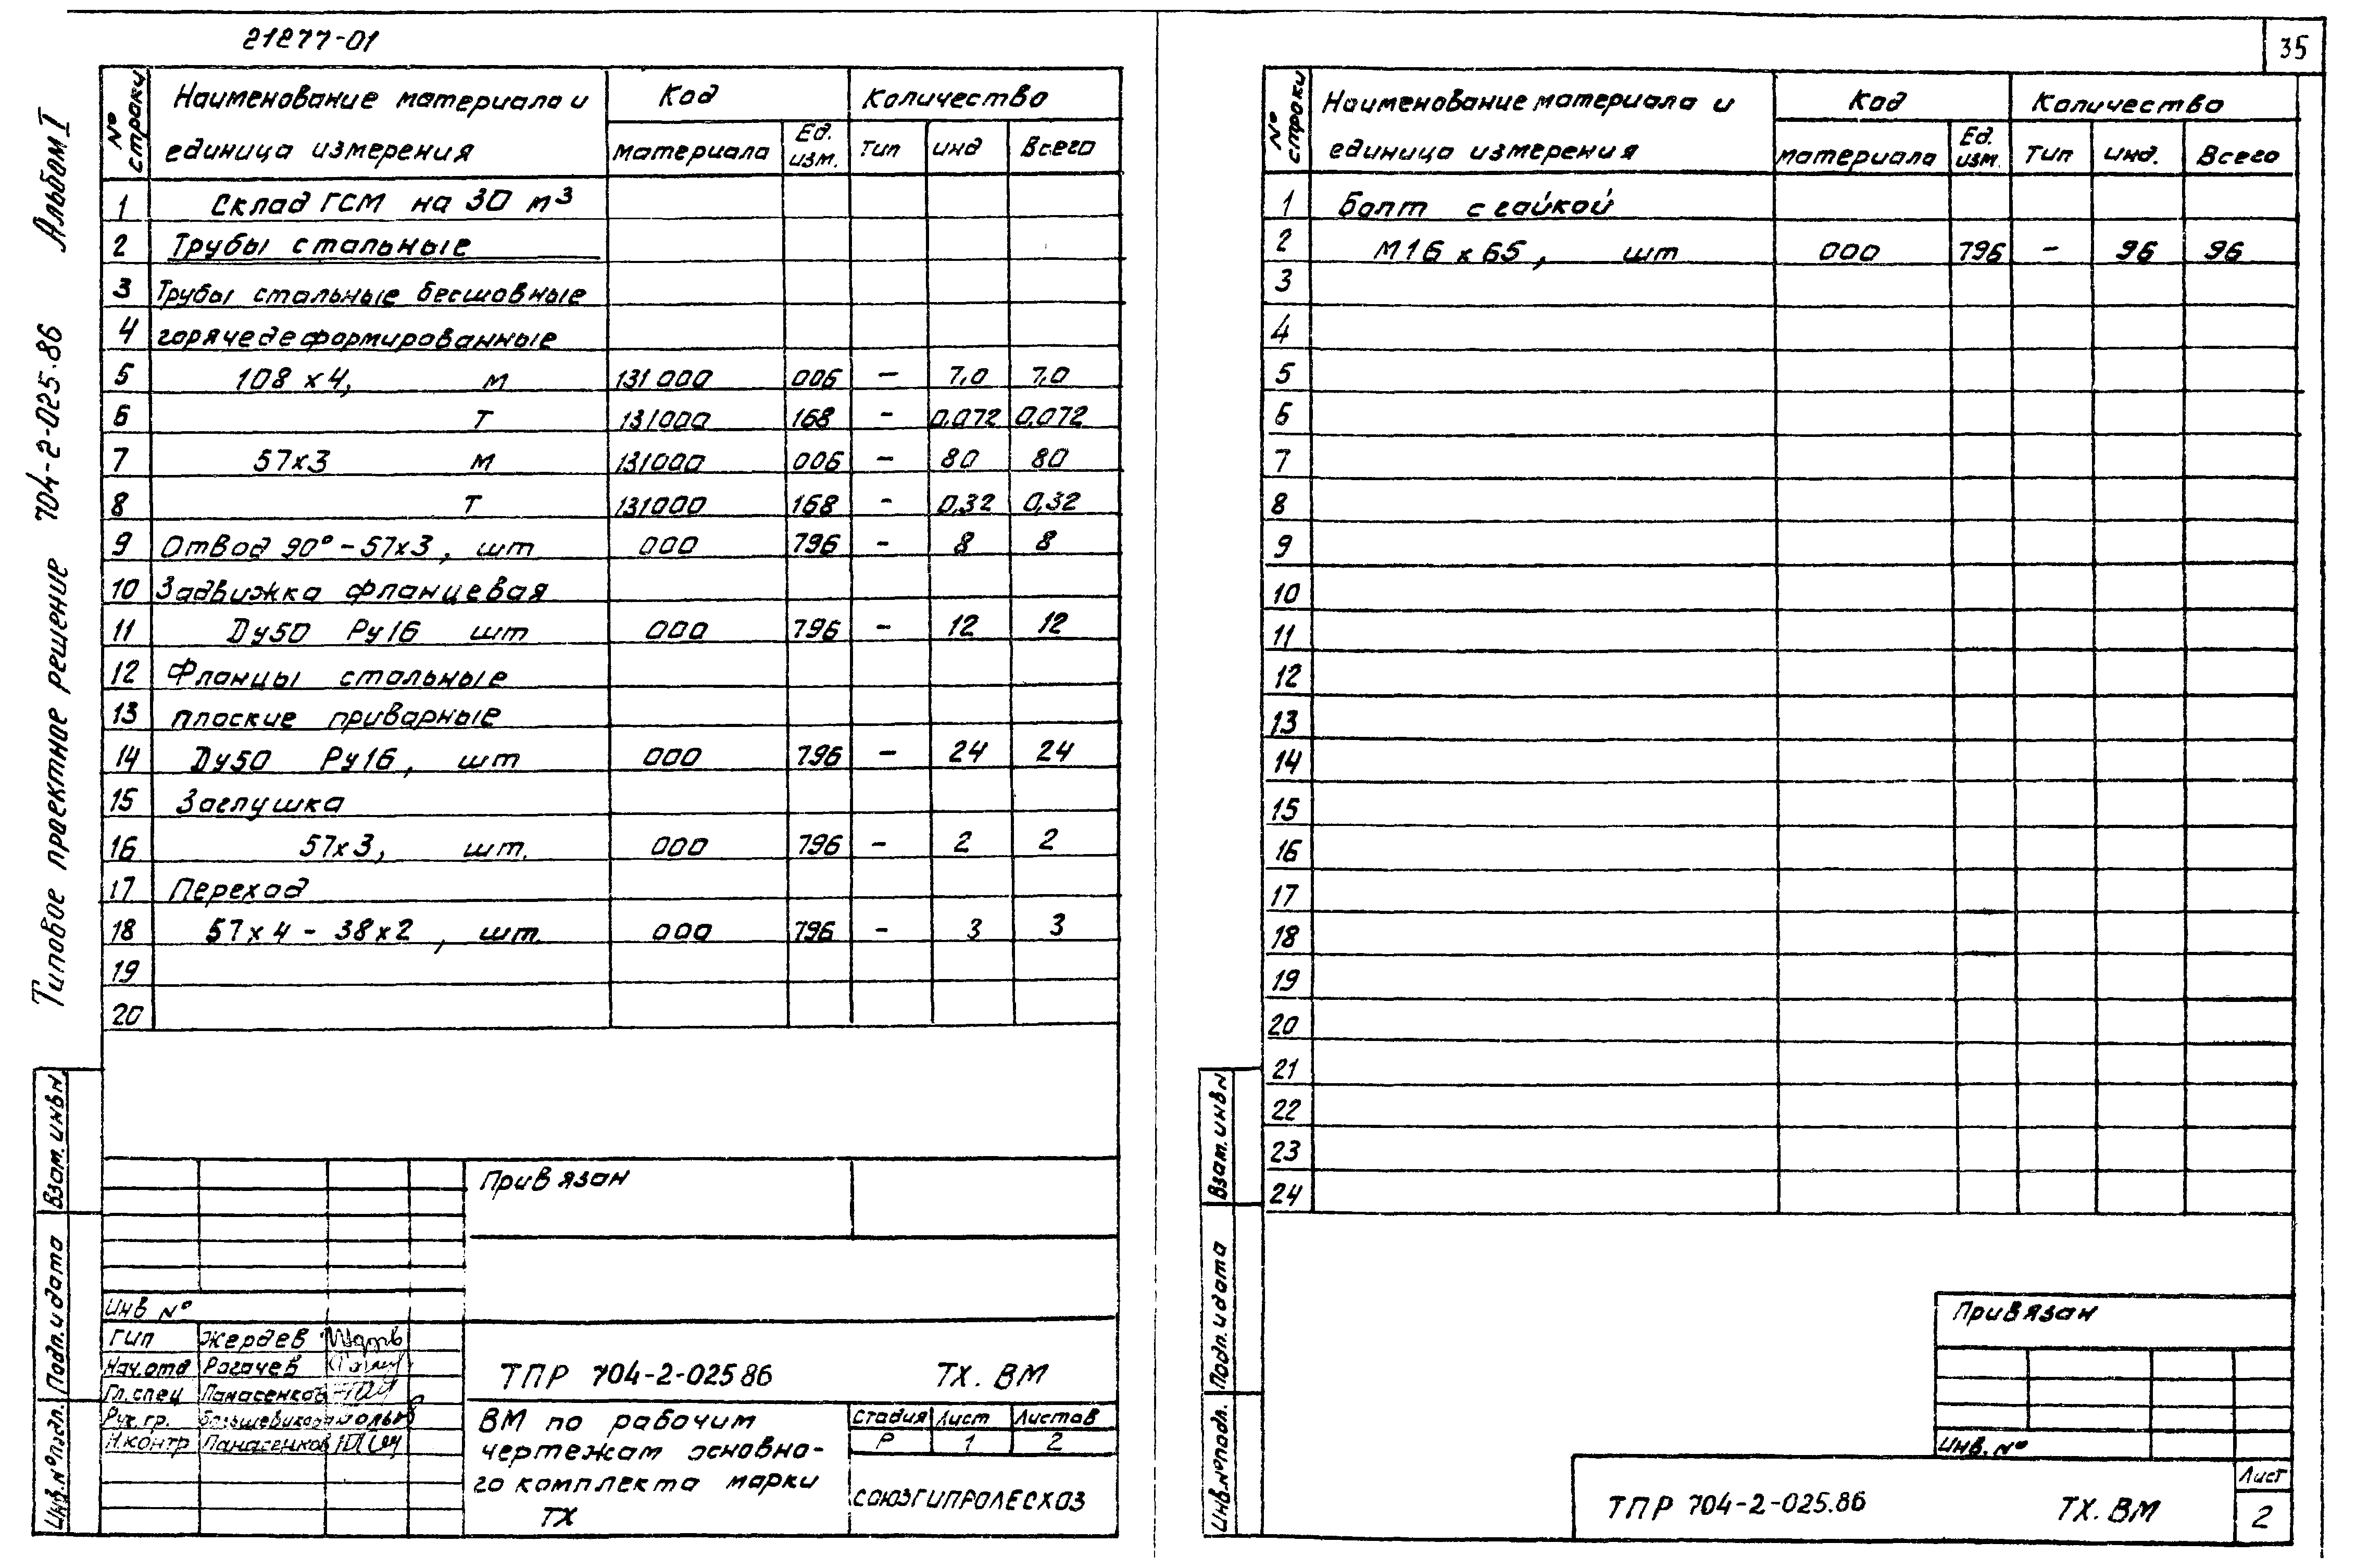 21277-01
35
Альбом I
Типовое проектное решение 704-2-025.86
№ строки
Наименование материала и единица измерения
Код
Количество
материала
Ед. изм.
тип
инд
Всего
1 Склад ГСМ на 30 м³
2 Трубы стальные
3 Трубы стальные бесшовные
4 горячедеформированные
5 108 х 4, м 131 000 006 – 7,0 7,0
6 т 131000 168 – 0,072 0,072
7 57х3 м 131000 006 – 80 80
8 т 131000 168 – 0,32 0,32
9 Отвод 90° – 57х3, шт 000 796 – 8 8
10 Задвижка фланцевая
11 Ду50 Ру16 шт 000 796 – 12 12
12 Фланцы стальные
13 плоские приварные
14 Ду50 Ру16, шт 000 796 – 24 24
15 Заглушка
16 57х3, шт. 000 796 – 2 2
17 Переход
18 57х4 – 38х2, шт. 000 796 – 3 3
19
20
Взам. инв N
Подп. и дата
Инв. № подл.
Привязан
Инв №
ГИП Жердев
Нач. отд Рогачев
Гл. спец Панасенков
Рук. гр.
Н.контр Панасенков
ТПР 704-2-025 86 ТХ. ВМ
ВМ по рабочим
чертежам основно-
го комплекта марки
ТХ
Стадия Лист Листов
Р 1 2
СОЮЗГИПРОЛЕСХОЗ
№ строки
Наименование материала и единица измерения
Код
Количество
материала
Ед. изм.
тип
инд.
Всего
1 Болт с гайкой
2 М16 х 65, шт 000 796 – 96 96
3
4
5
6
7
8
9
10
11
12
13
14
15
16
17
18
19
20
21
22
23
24
Взам. инв N
Подп. и дата
Инв. № подл.
Привязан
Инв. №
ТПР 704-2-025.86 ТХ. ВМ
Лист
2